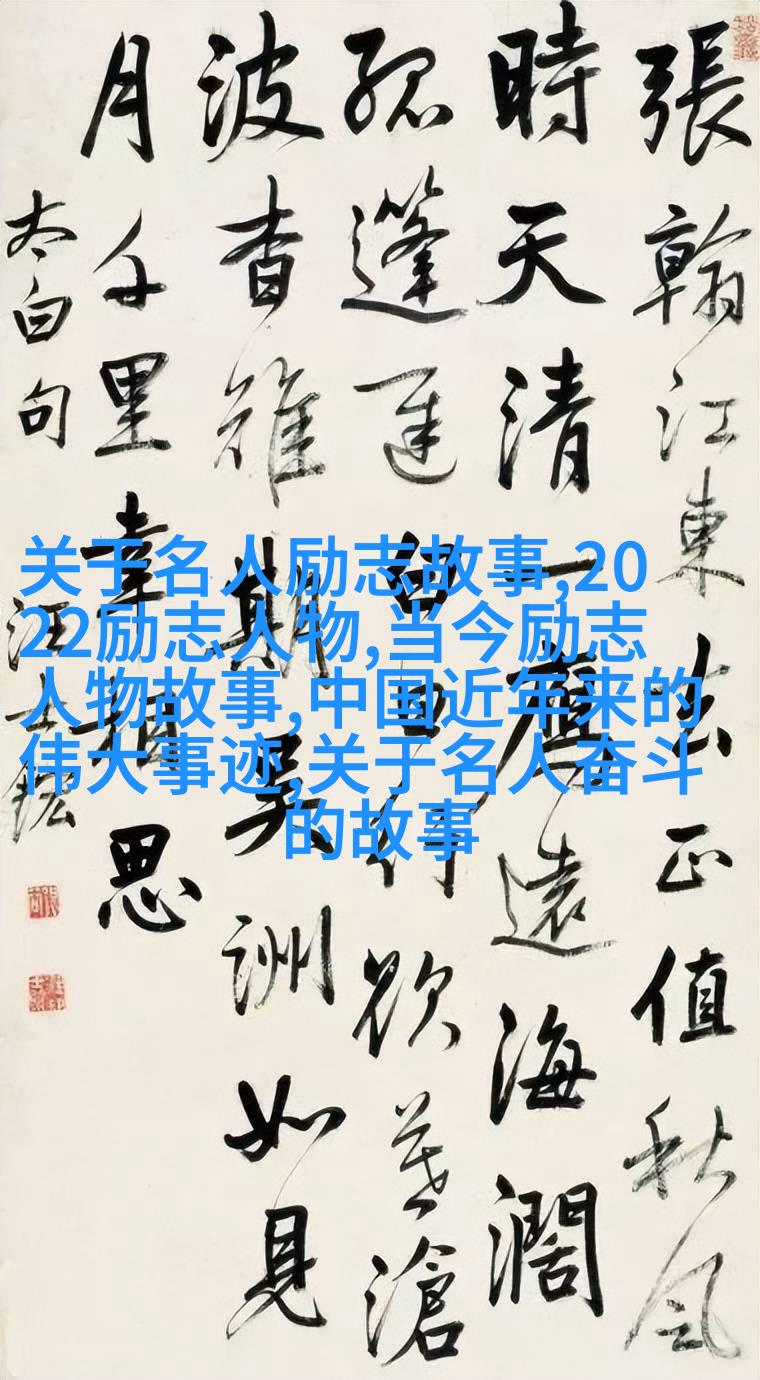 張翰江東去正值秋風
時天清一鴈遠海闊
孤篷遲白日行欲莫滄
波杳難期吳洲如見
月千里幸相思
太白句
汪士鋐
关于名人励志故事,20
22励志人物,当今励志
人物故事,中国近年来的
伟大事迹,关于名人奋斗
的故事